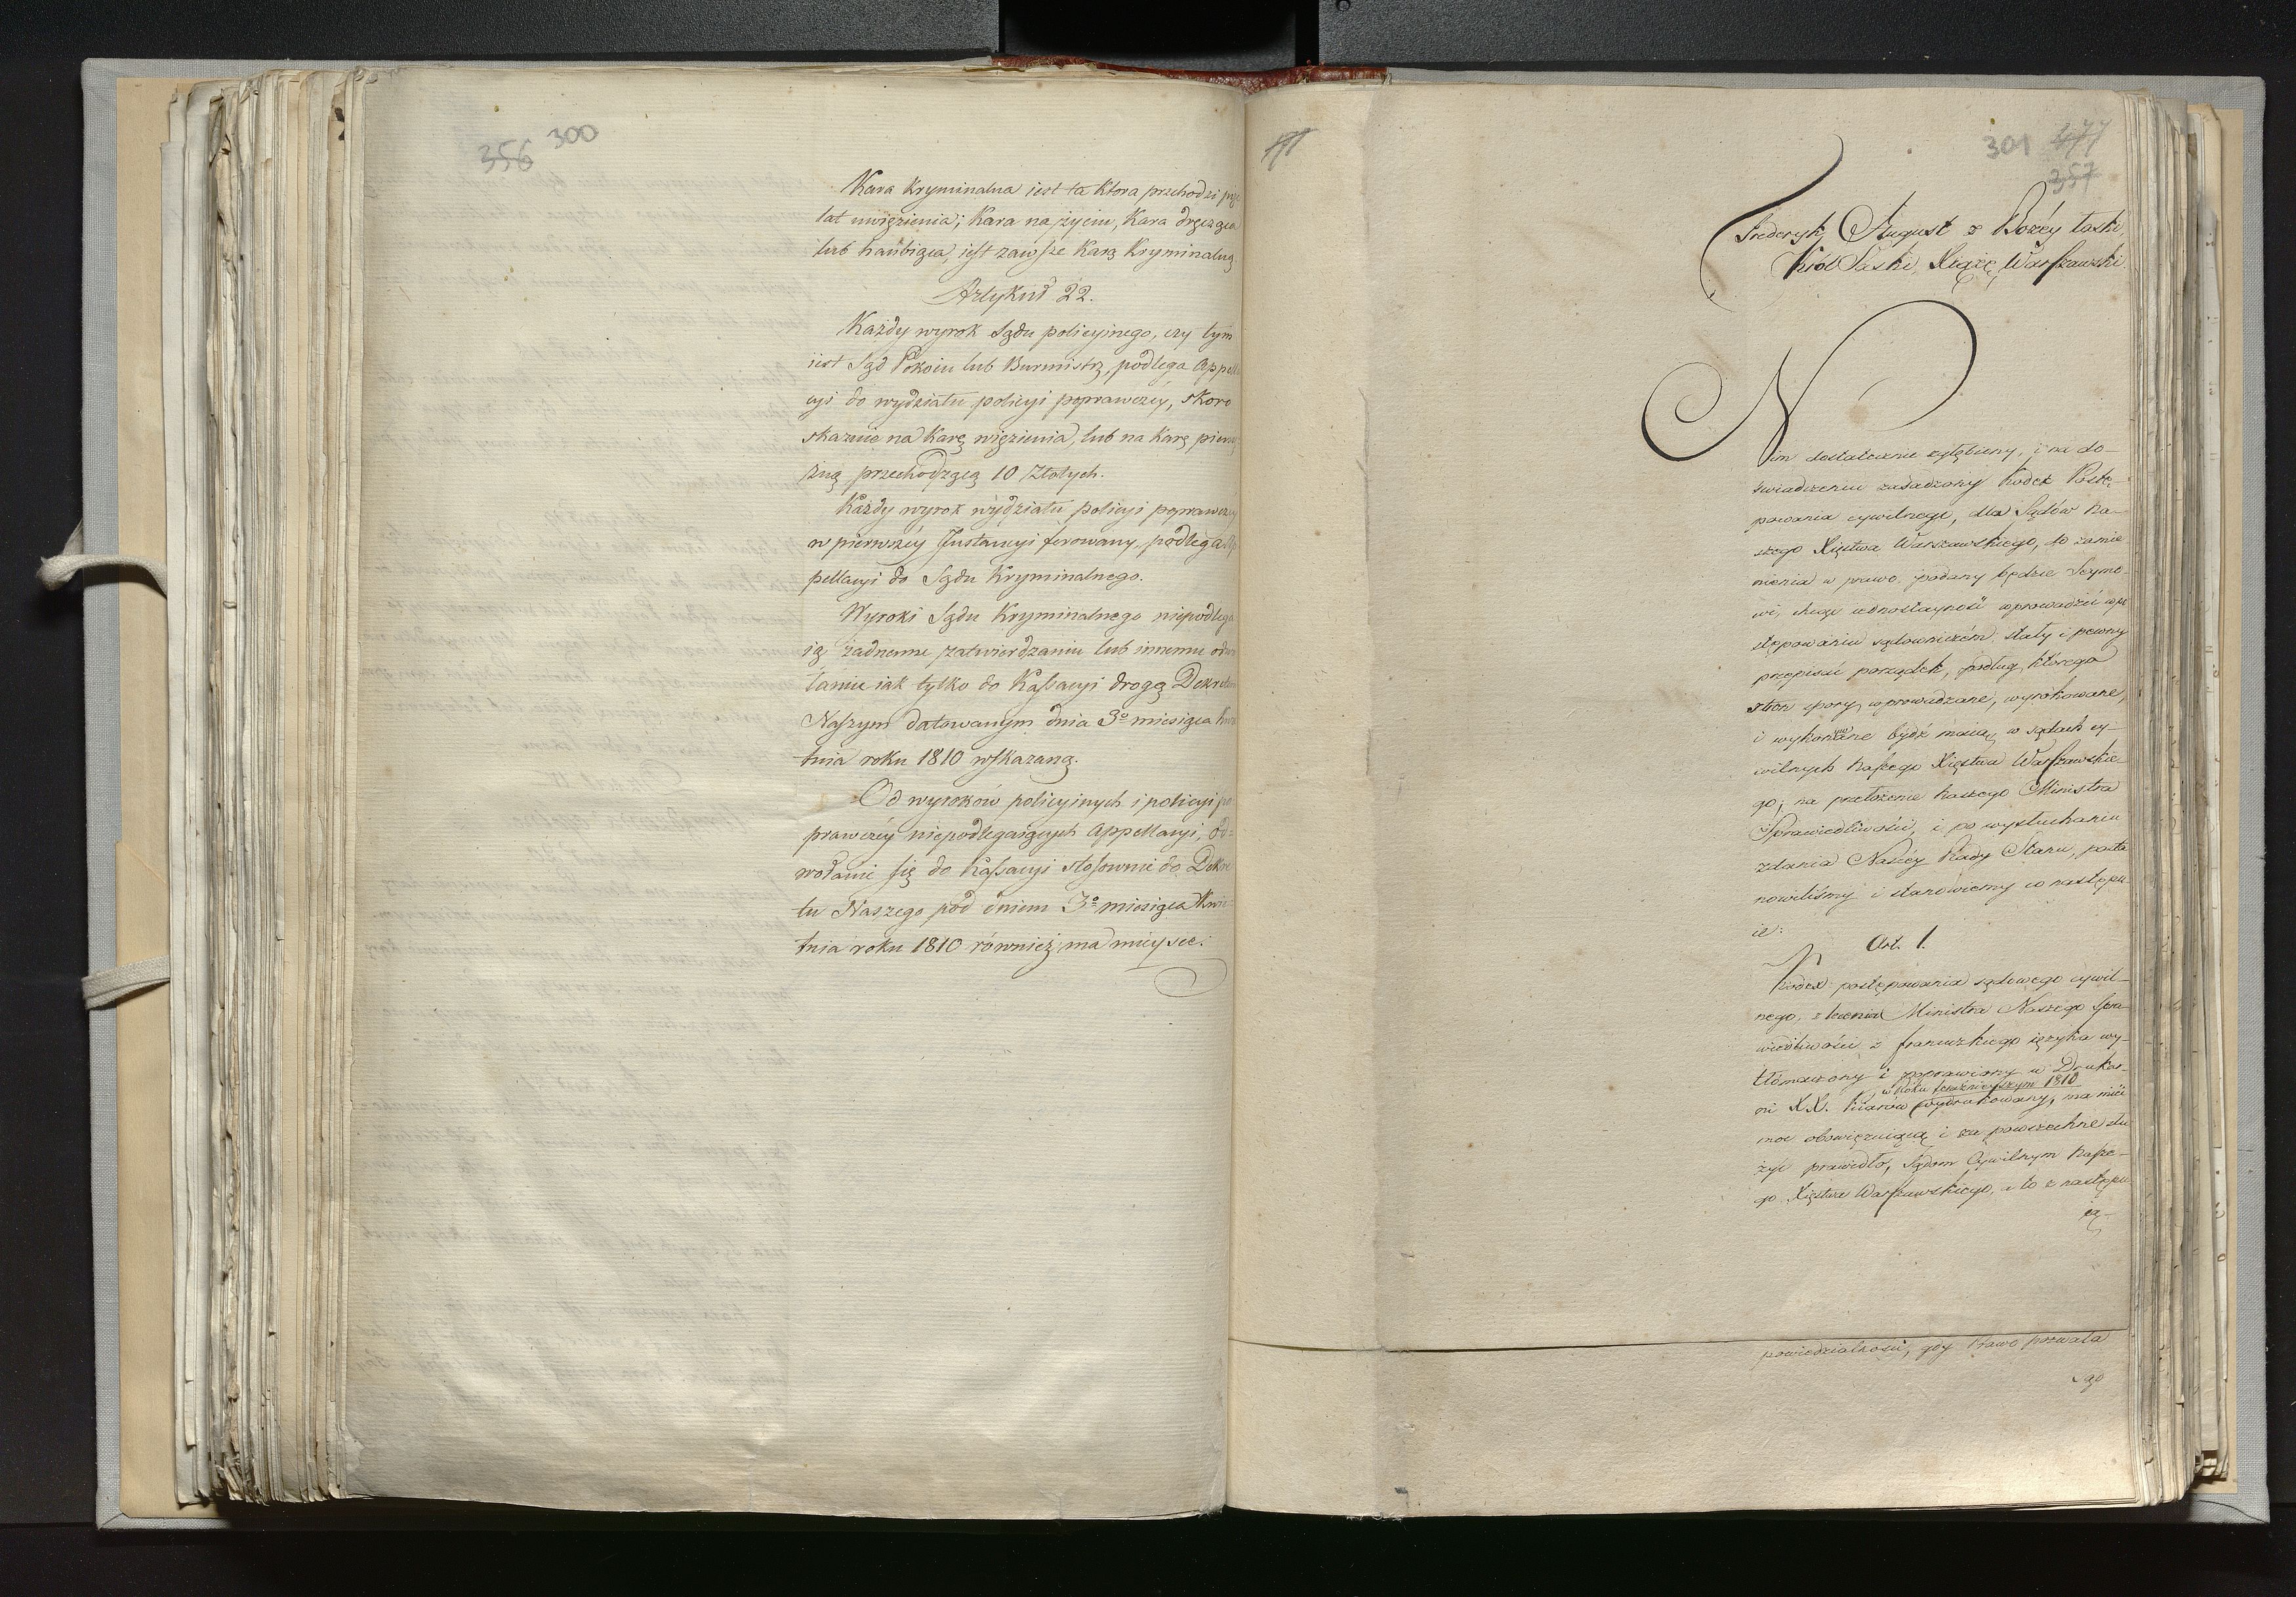 356 300
Kara Kryminalna iest ta Ktora przechodzi
lat uwięzienia; Kara na życiu, Kara dręcząca
lub hanbiąca, iest zawsze Karą Kryminalną
Artykuł 22.
Każdy wyrok Sądu policyjnego, czy tym
iest Sąd Pokoiu lub Burmistrz, podlega Appell
cyi do wydziału policyi poprawczey, skoro
skazuie na Karę więzienia, lub na Karę pienię
żną przechodzącą 10 Złotych.
Każdy wyrok wydziału policyi poprawczey
w pierwszey Instancyi ferowany, podlega Ap
pellacyi do Sądu Kryminalnego.
Wyroki Sądu Kryminalnego niepodlega
ią żadnemu zatwierdzaniu lub innemu odwo
łaniu iak tylko do Kassacyi drogą Dekretem
Naszym datowanym dnia 3º miesiąca Kwie
tnia roku 1810 wskazaną.
Od wyroków policyinych i policyi po
prawczey niepodlegaiących Appellacyi, od=
wołanie się do Kassacyi stosownie do Dekre
tu Naszego pod dniem 3º miesiąca Kwie
tnia roku 1810 również ma mieysce.
301 477
357
Frederyk August z Bożey łaski,
Król Saski, Xiążę Warszawski
Nim dostatecznie zgłębiony, i na do-
świadczeniu zasadzony Kodex Postę-
powania cywilnego, dla Sądów Na-
szego Xięstwa Warszawskiego, do zamie
nienia w prawo podany będzie Seymo-
wi, chcąc iednostayność wprowadzić w po
stępowaniu sądowniczém, stały i pewny
przepisać porządek, podług którego
stron spory wprowadzane, wyrokowane,
i wykonywane bydź maią, w sądach cy-
wilnych Naszego Xięstwa Warszawskie
go; na przełożenie Naszego Ministra
Sprawiedliwości, i po wysłuchaniu
zdania Naszéy Rady Stanu, posta
nowiliśmy i stanowiemy co następu-
ie:
Art. 1.
Kodex postępowania sądowego cywil-
nego, z Ministra Naszego Spra
wiedliwości z francuzkiego ięzyka wy-
tłómaczony i poprawiony w Drukar-
w Roku teraźnieyszym 1810
ni XX. Piiarów wydrukowany, ma mieć
moc obowięzuiącą i za powszechne słu
żyć prawidło, Sądom Cywilnym Nasze-
go Xięstwa Warszawskiego, a to z następu
ią-
powiedzialności, gdy Prawo pozwala